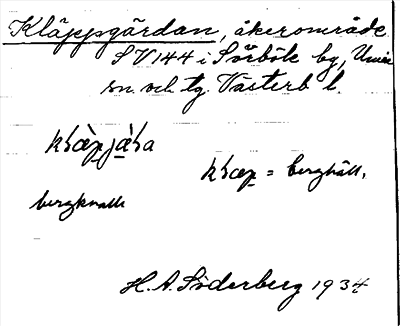 Kläppgärdan, åkerområde
SV144 i Sörböle by, Umeå
sn. och tg. Västerb l.
kɬæp = berghäll,
bergknalle
H. A. Söderberg 1934